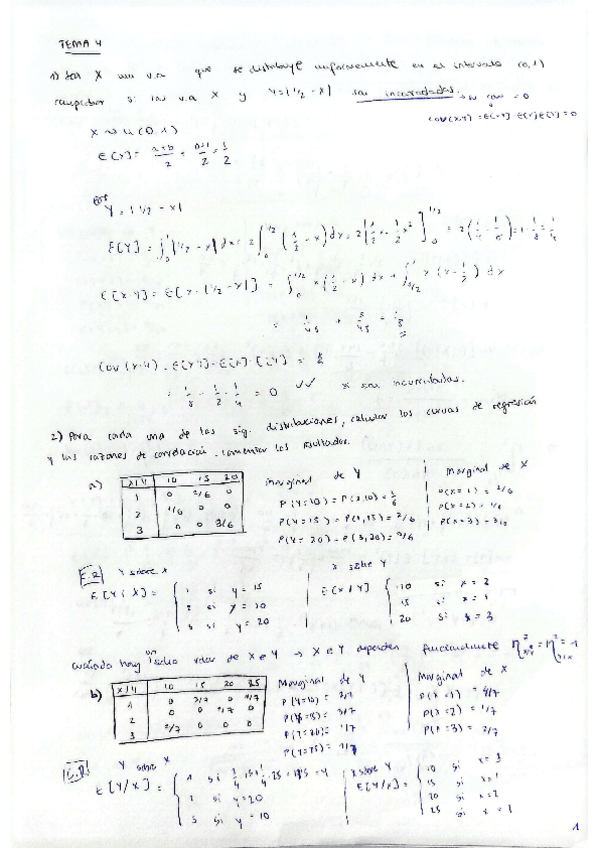 TEMA 4
1) Sea X una v.a que se distribuye uniformemente en el intervalo (0,1)
comprobar si las v.a X y Y=|1/2 - X| son incorreladas. → cov = 0
cov(X,Y) = E[XY] - E[X]E[Y] = 0
X ~ U(0,1)
E[X] = a+b/2 = 0+1/2 = 1/2
Y = |1/2 - X|
E[Y] = ∫₀¹ |1/2 - x| dx = 2∫₀^1/2 (1/2 - x) dx = 2[1/2 x - 1/2 x²]₀^1/2 = 2(1/4 - 1/8) =
E[X·Y] = E[X·|1/2 - X|] = ∫₀^1/2 x(1/2 - x) dx + ∫ x(x - 1/2) dx
= 1/48 + 5/48 = 1/8
Cov(X,Y) = E[XY] - E[X]·E[Y] =
= 1/8 - 1/2 · 1/4 = 0 ✓✓ son incorreladas.
2) Para cada una de las sig. distribuciones, calcular las curvas de regresión
y las razones de correlación. Comentar los resultados.
a) X/Y 10 15 20
1 0 2/6 0
2 1/6 0 0
3 0 0 3/6
Marginal de Y
P(Y=10) = P(2,10) = 1/6
P(Y=15) = P(1,15) = 2/6
P(Y=20) = P(3,20) = 3/6
Marginal de X
P(X=1) = 2/6
P(X=2) = 1/6
P(X=3) =
C.R Y sobre X
1 si y=15
2 si y=10
3 si y=20
X sobre Y
10 si x=2
15 si x=1
20 si x=3
cuando hay un solo valor de X e Y → X e Y dependen funcionalmente η² = η² = 1
b) X/Y 10 15 20 25
1 0 3/7 0 1/7
2 0 0 1/7 0
3 2/7 0 0 0
Marginal de Y
P(Y=10) = 2/7
P(Y=15) = 3/7
P(Y=20) = 1/7
P(Y=25) = 1/7
Marginal de X
P(X=1) = 4/7
P(X=2) = 1/7
P(X=3) = 2/7
C.R Y sobre X
E[Y/X] =
2 si y=20
3 si y=10
X sobre Y
E[Y/X] =
10 si x=3
15 si x=1
20 si x=2
25 si x=1
1